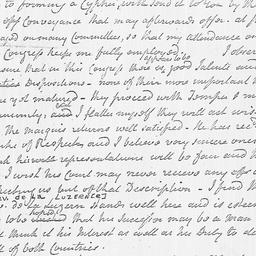 to forming a Cypher, will send it to you by the
off Conveyance that may afterwards offer. at p
aced on many Committees, so that my attendance on
Congress keeps me fully employed. I obser
sure that in this Congress there is good Talents an
Dispositions - none of their more important
yet matured - they proceed with Temper &
unanimity, and I flatter myself they will ask
The Marquis returns well satisfied. He has rec
marks of Respect and I believe very sincere ones
his will representations will be fair and
I wish his Court may never receive any
but of that Description - I find
V. DE LA LUZERNE]
de la Luzern Stands well here and is esteem
hoped
to be that his Successor may be a man
think it his Interest as well as his Duty to
of both Countries.